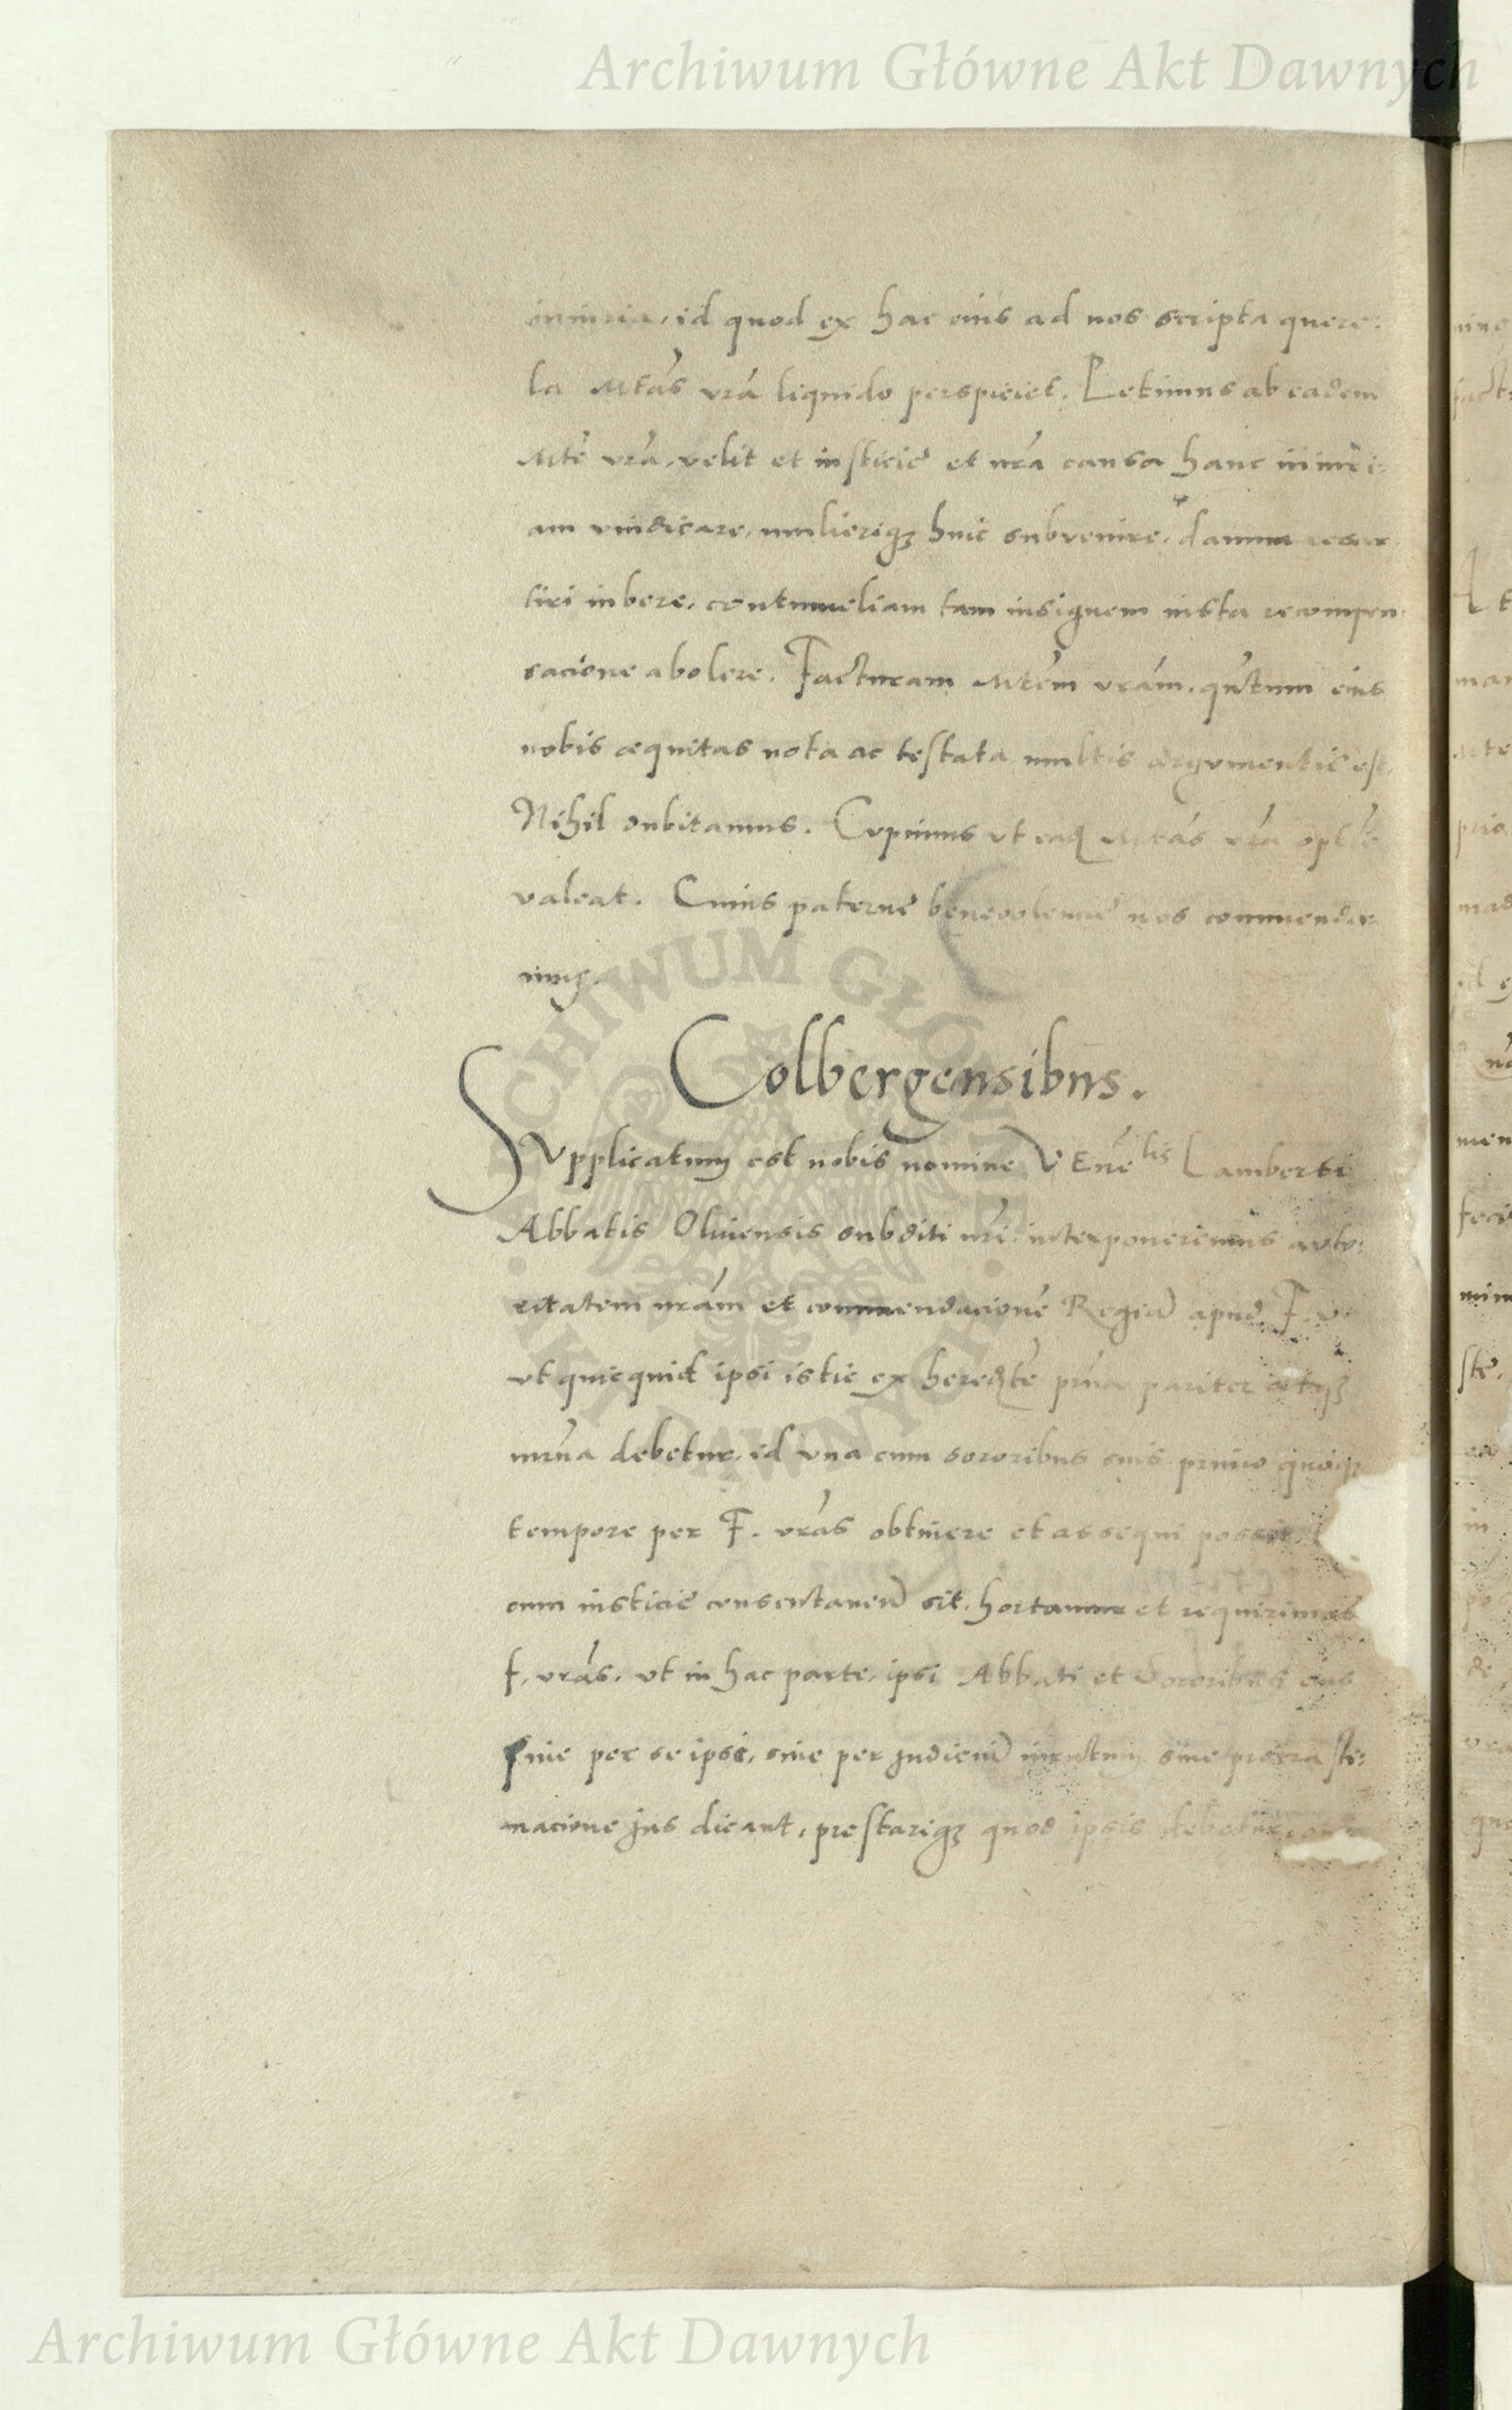 Archiwum Główne Akt Dawnych
iniuria, id quod ex hac eius ad nos scripta quere:
la Mtas vrã liquido perspiciet. Petimus ab eadem
Mte vrã, velit et iusticie et nrã causa hanc iniuri:
am vindicare, mulieriqȝ huic subvenire, damna resar
tiri iubere, contumeliam tam insignem iusta recompen
sacione abolere. Facturam Mtem vram, quantum eius
nobis æquitas nota ac testata multis argumentis est,
Nihil dubitamus. Cupimus vt eadem Mtas vrã optime
valeat. Cuius paterne benevolencie nos commenda:
mus.
Colbergensibus.
Supplicatum est nobis nomine VEneˡⁱˢ Lamberti
Abbatis Oliuiensis subditi nrĩ: interponeremus auto:
ritatem nram et commendacione Regia apud F. v.
vt quicquid ipsi istic ex heredte prna pariter atqȝ
mrna debetur, id vna cum sororibus suis primo quoqȝ
tempore per F. vras obtinere et assequi possit
cum iusticie consentaneu sit, hortamur et requirimus
f. vras, vt in hac parte, ipsi Abbati et Sororibus eius
siue per se ipse, siue per Judiciu sine procrasti:
nacione Jus dicant, prestariqȝ quod ipsis debetur
ARCHIWUM GŁÓWNE AKT DAWNYCH
Archiwum Główne Akt Dawnych